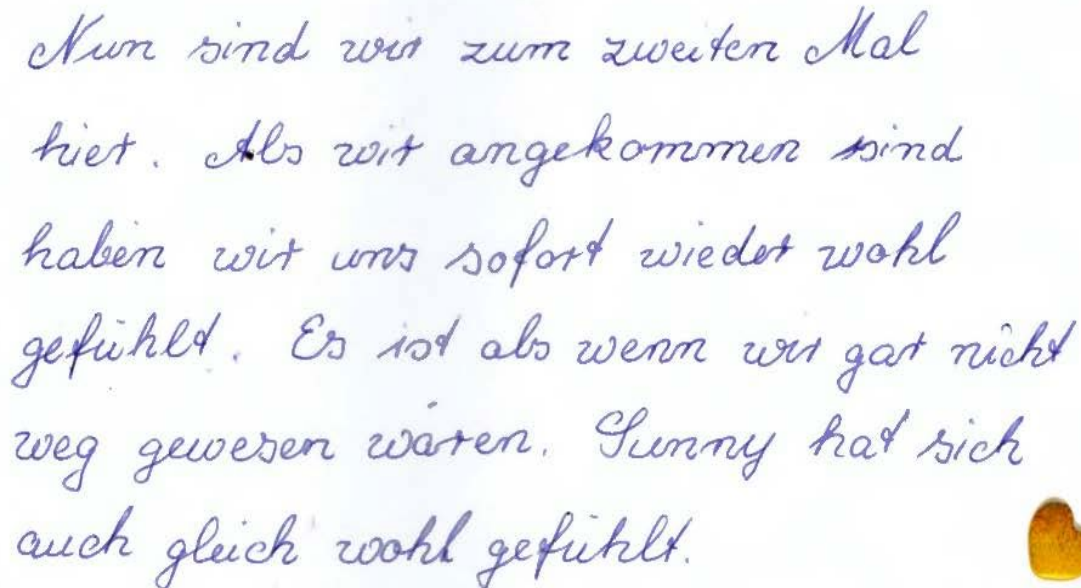 Nun sind wir zum zweiten Mal
hier. Als wir angekommen sind
haben wir uns sofort wieder wohl
gefühlt. Es ist als wenn wir gar nicht
weg gewesen wären. Sunny hat sich
auch gleich wohl gefühlt.